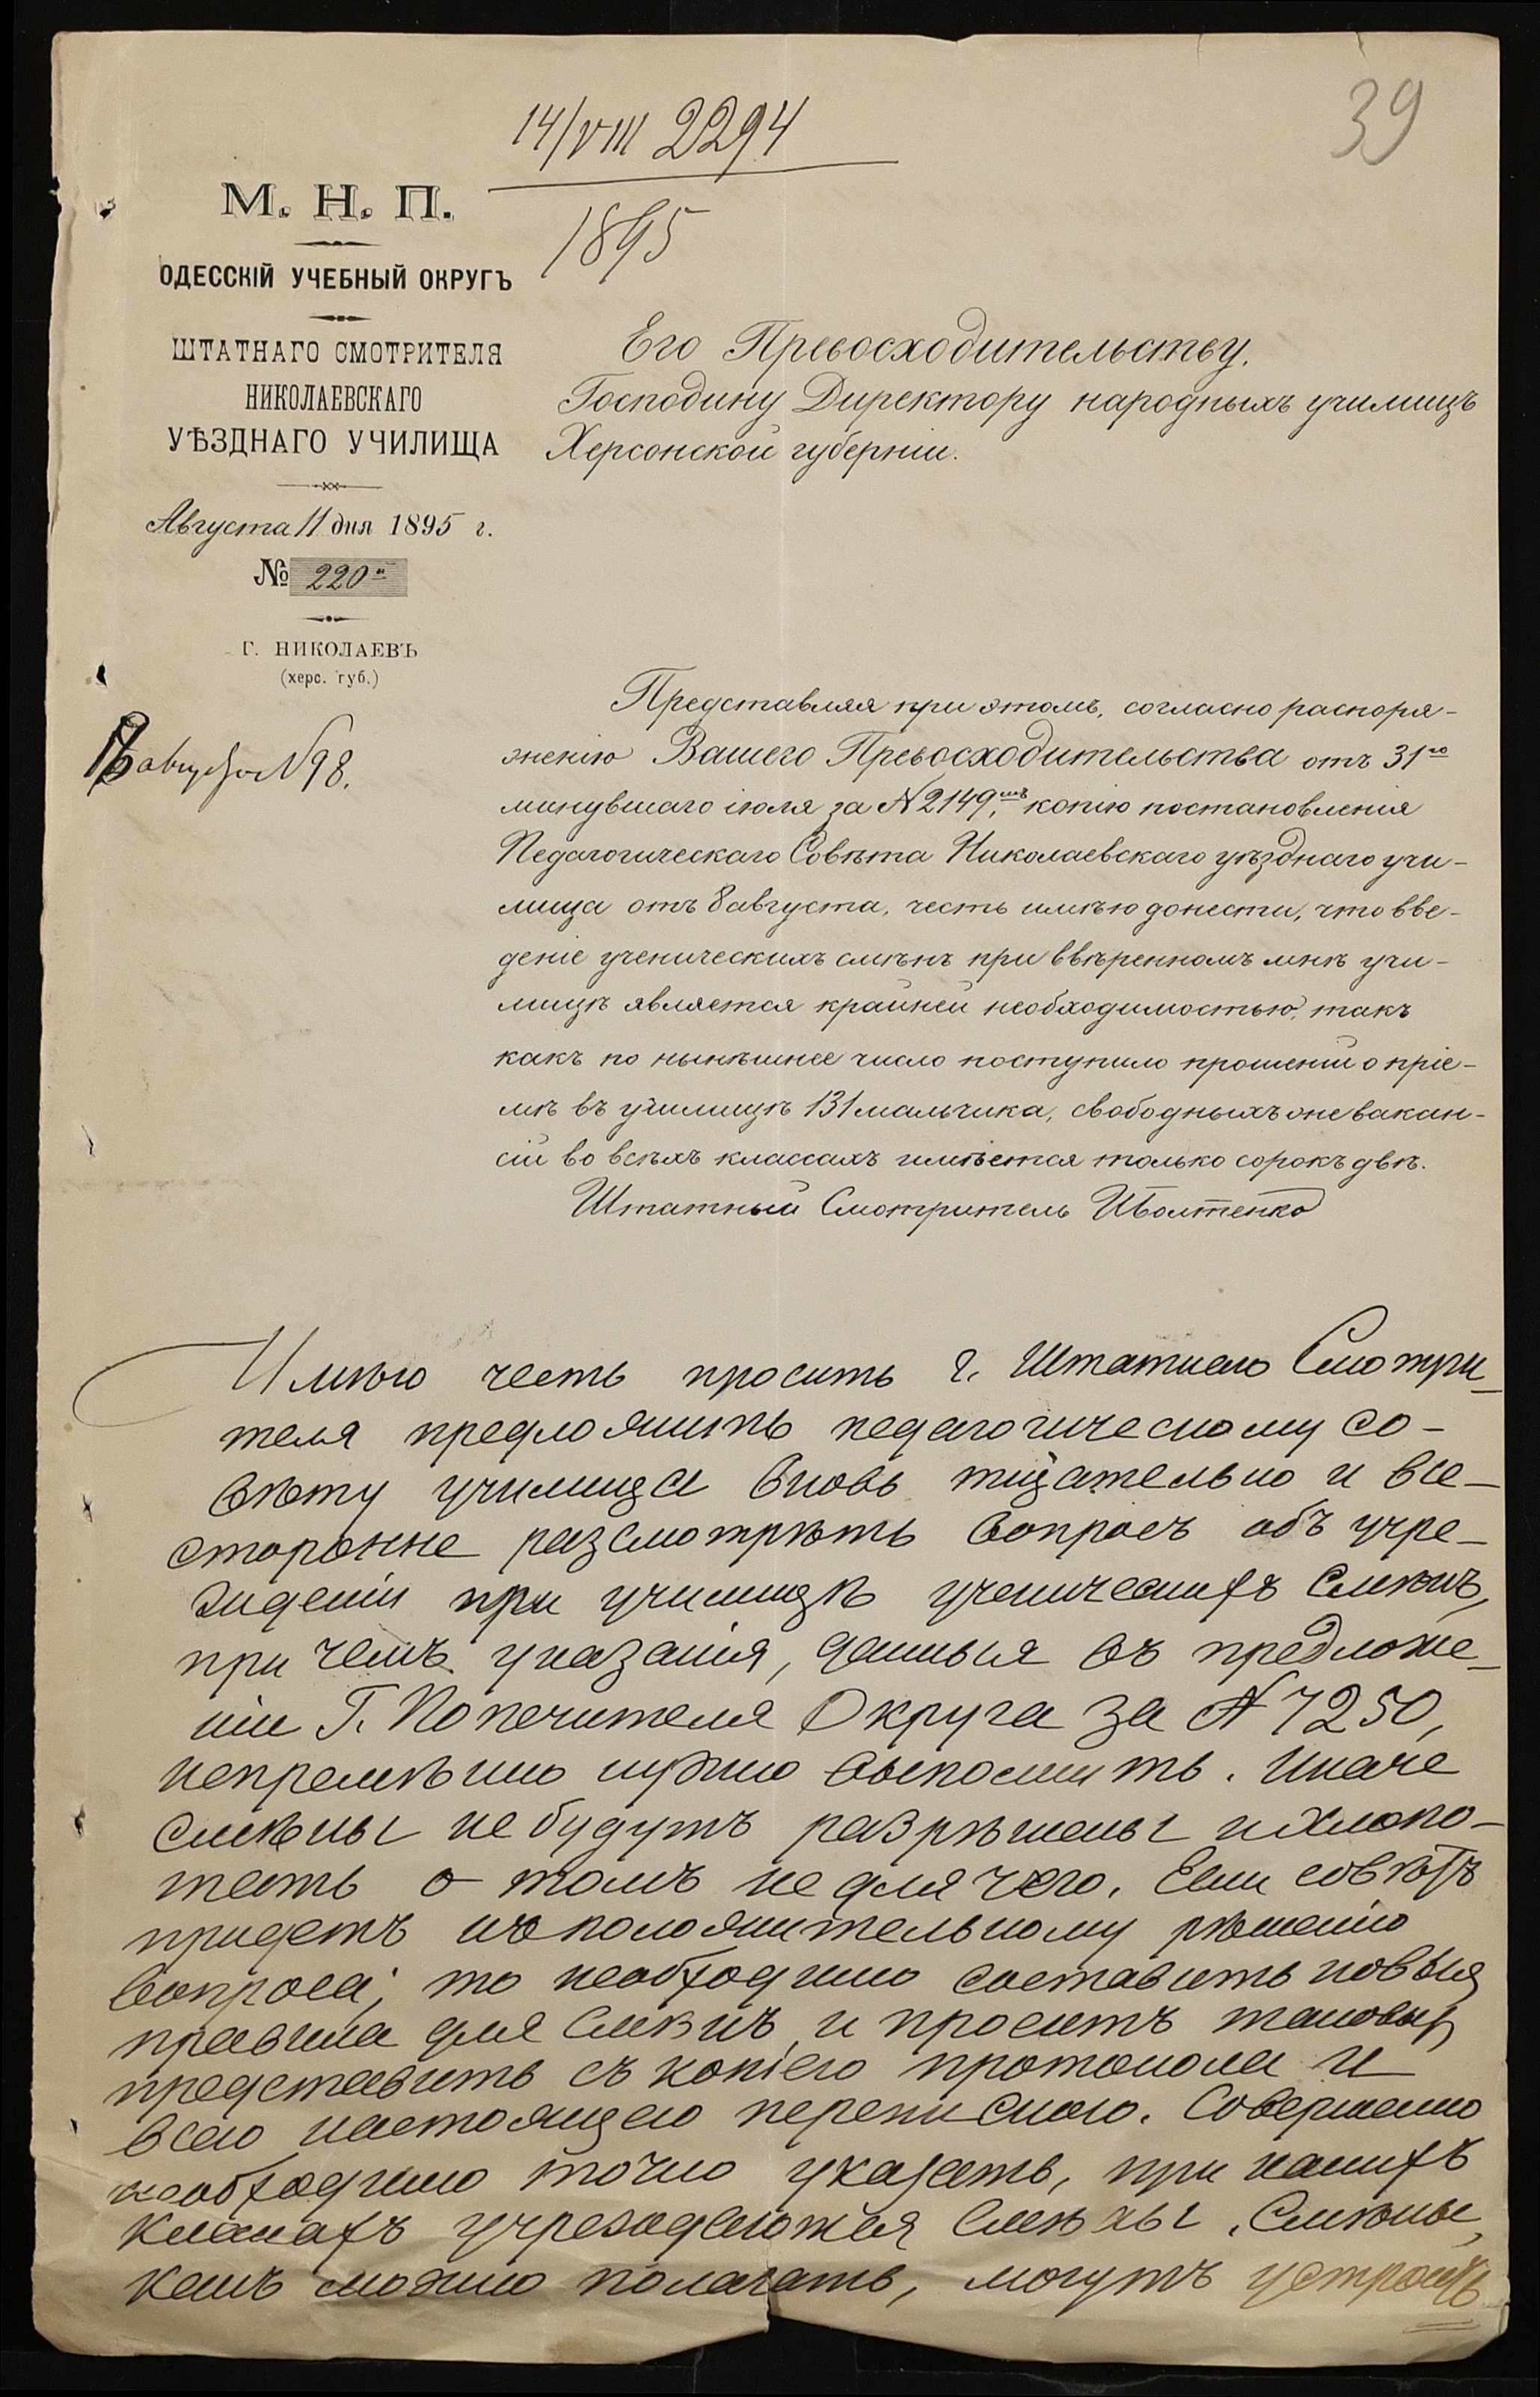 39
14/VIII 2294
1895
М. Н. П.
ОДЕССКІЙ УЧЕБНЫЙ ОКРУГЪ
ШТАТНАГО СМОТРИТЕЛЯ
НИКОЛАЕВСКАГО
УѢЗДНАГО УЧИЛИЩА
Августа 11 дня 1895 г.
№ 220-й
Г. НИКОЛАЕВЪ
(херс. губ.)
августа N 98.
Его Превосходительству.
Господину Директору народныхъ училищъ
Херсонской губерніи.
Представляя при этомъ, согласно распоря-
женію Вашего Превосходительства отъ 31го
минувшаго іюля за N 2149, копію постановленія
Педагогическаго Совѣта Николаевскаго уѣзднаго учи-
лища отъ 8 августа, честь имѣю донести, что вве-
деніе ученическихъ смѣнъ при ввѣренномъ мнѣ учи-
лищѣ является крайней необходимостью, такъ
какъ по нынѣшнее число поступило прошеній о пріе-
мѣ въ училищѣ 131 мальчика, свободныхъ же вакан-
сій во всѣхъ классахъ имѣется только сорокъ двѣ.
Штатный Смотритель И Болтенко
Имѣю честь просить г. Штатнаго Смотри-
теля предложить педагогическому со-
вѣту училища вновь тщательно и все-
сторонне разсмотрѣть вопросъ объ учре-
жденіи при училищѣ ученическихъ смѣнъ,
при чемъ указанія, данныя въ предложе-
ніи Г. Попечителя Округа за N 7250,
непремѣнно нужно выполнить. Иначе
смѣны не будутъ разрѣшены и хлопо-
тать о томъ не для чего. Если совѣтъ
придетъ къ положительному рѣшенію
вопроса, то необходимо составить новыя
правила для смѣнъ и проситъ таковыя
представить съ копіею протокола и
всею настоящею перепискою. Совершенно
необходимо точно указать, при какихъ
классахъ учреждаются смѣны. Смѣны,
какъ можно полагать, могутъ